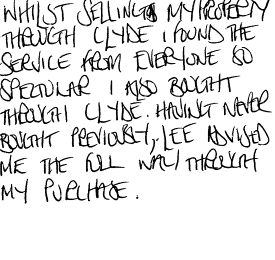 WHILST SELLING MY PROPERTY
THROUGH CLYDE I FOUND THE
SERVICE FROM EVERYONE SO
SPECTULAR I ALSO BOUGHT
THROUGH CLYDE. HAVING NEVER
BOUGHT PREVIOUSLY, LEE ADVISED
ME THE FULL WAY THROUGH
MY PURCHASE.